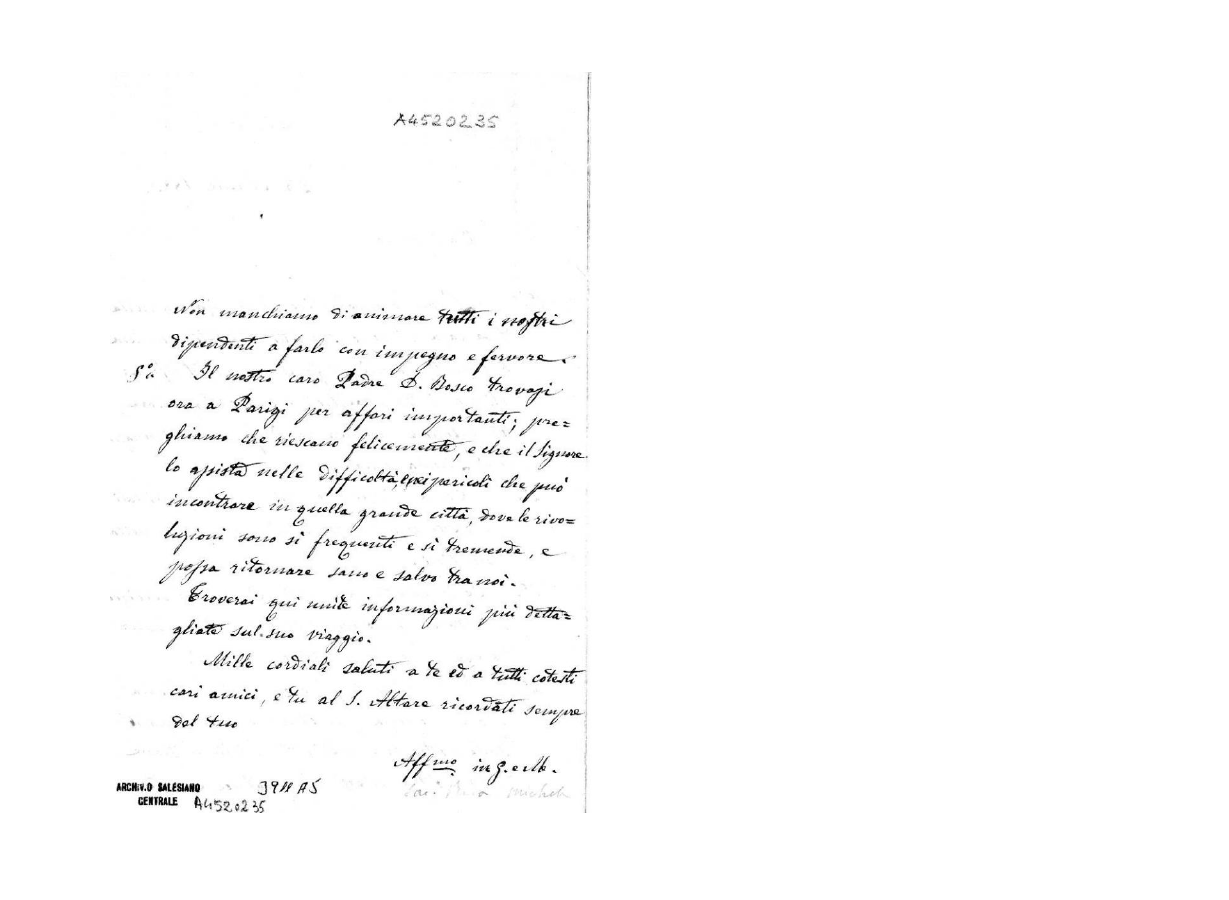 A4520235
Non manchiamo di animare tutti i nostri
dipendenti a farlo con impegno e fervore.
5°.
Il nostro caro Padre D. Bosco trovasi
ora a Parigi per affari importanti; pre=
ghiamo che riescano felicemente, e che il Signore
lo assista nelle difficoltà, pericoli che può
incontrare in quella grande città, dove le rivo=
luzioni sono sì frequenti e sì tremende, e
possa ritornare sano e salvo tra noi.
Troverai qui unite informazioni più detta=
gliate sul suo viaggio.
Mille cordiali saluti a te ed a tutti cotesti
cari amici, e tu al S. Altare ricordati sempre
del tuo
Affmo in G. e M.
ARCHIV.O SALESIANO
CENTRALE
A4520235